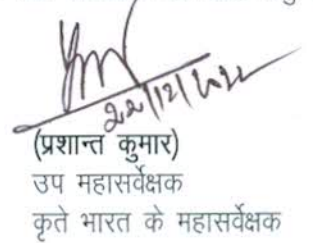 22/12/2022
(प्रशान्त कुमार)
उप महासर्वेक्षक
कृते भारत के महासर्वेक्षक